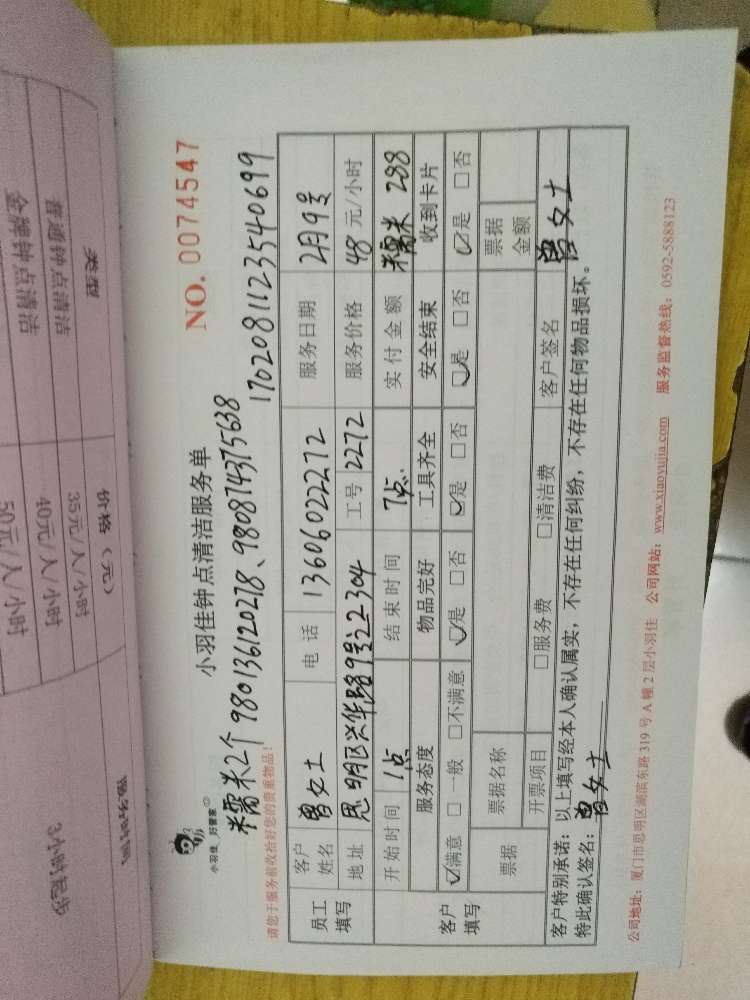 小羽佳 好管家
小羽佳钟点清洁服务单
NO. 0074547
糯米2个 980136120278、980874375638
170208112354069​9
请您于服务前收拾好您的贵重物品！
员工填写 客户姓名 曾女士 电话 13606022272 服务日期 2月9号
地址 思明区兴华路9号之2 304 工号 2272 服务价格 48 元/小时
开始时间 1点 结束时间 7点 实付金额 糯米 288
客户填写 服务态度 物品完好 工具齐全 安全结束 收到卡片
☑满意 □一般 □不满意 ☑是 □否 ☑是 □否 ☑是 □否 ☑是 □否
票据 票据名称 票据金额
开票项目 □服务费 □清洁费 客户签名 曾女士
客户特别承诺：以上填写经本人确认属实，不存在任何纠纷，不存在任何物品损坏。
特此确认签名：曾女士
公司地址：厦门市思明区湖滨东路 319 号 A 幢 2 层小羽佳 公司网站：www.xiaoyujia.com 服务监督热线：0592-5888123
类型 价格（元）
普通钟点清洁 35元/人/小时
金牌钟点清洁 40元/人/小时
50元/人/小时
3小时起步